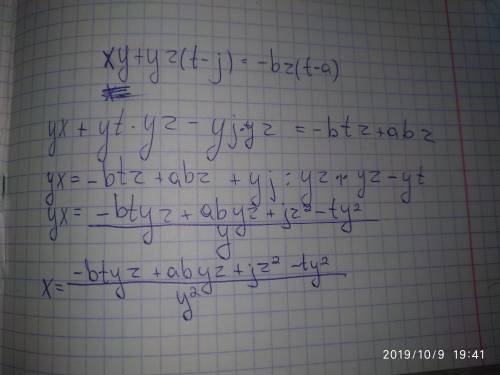 xy+yz(t-j)=-bz(t-a)
yx+yt·yz-yj·yz=-btz+abz
yx=-btz+abz+yj:yz+yz-yt
yx=\frac{-btyz+abyz+jz²-ty²}{y}
x=\frac{-btyz+abyz+jz²-ty²}{y²}
2019/10/9 19:41